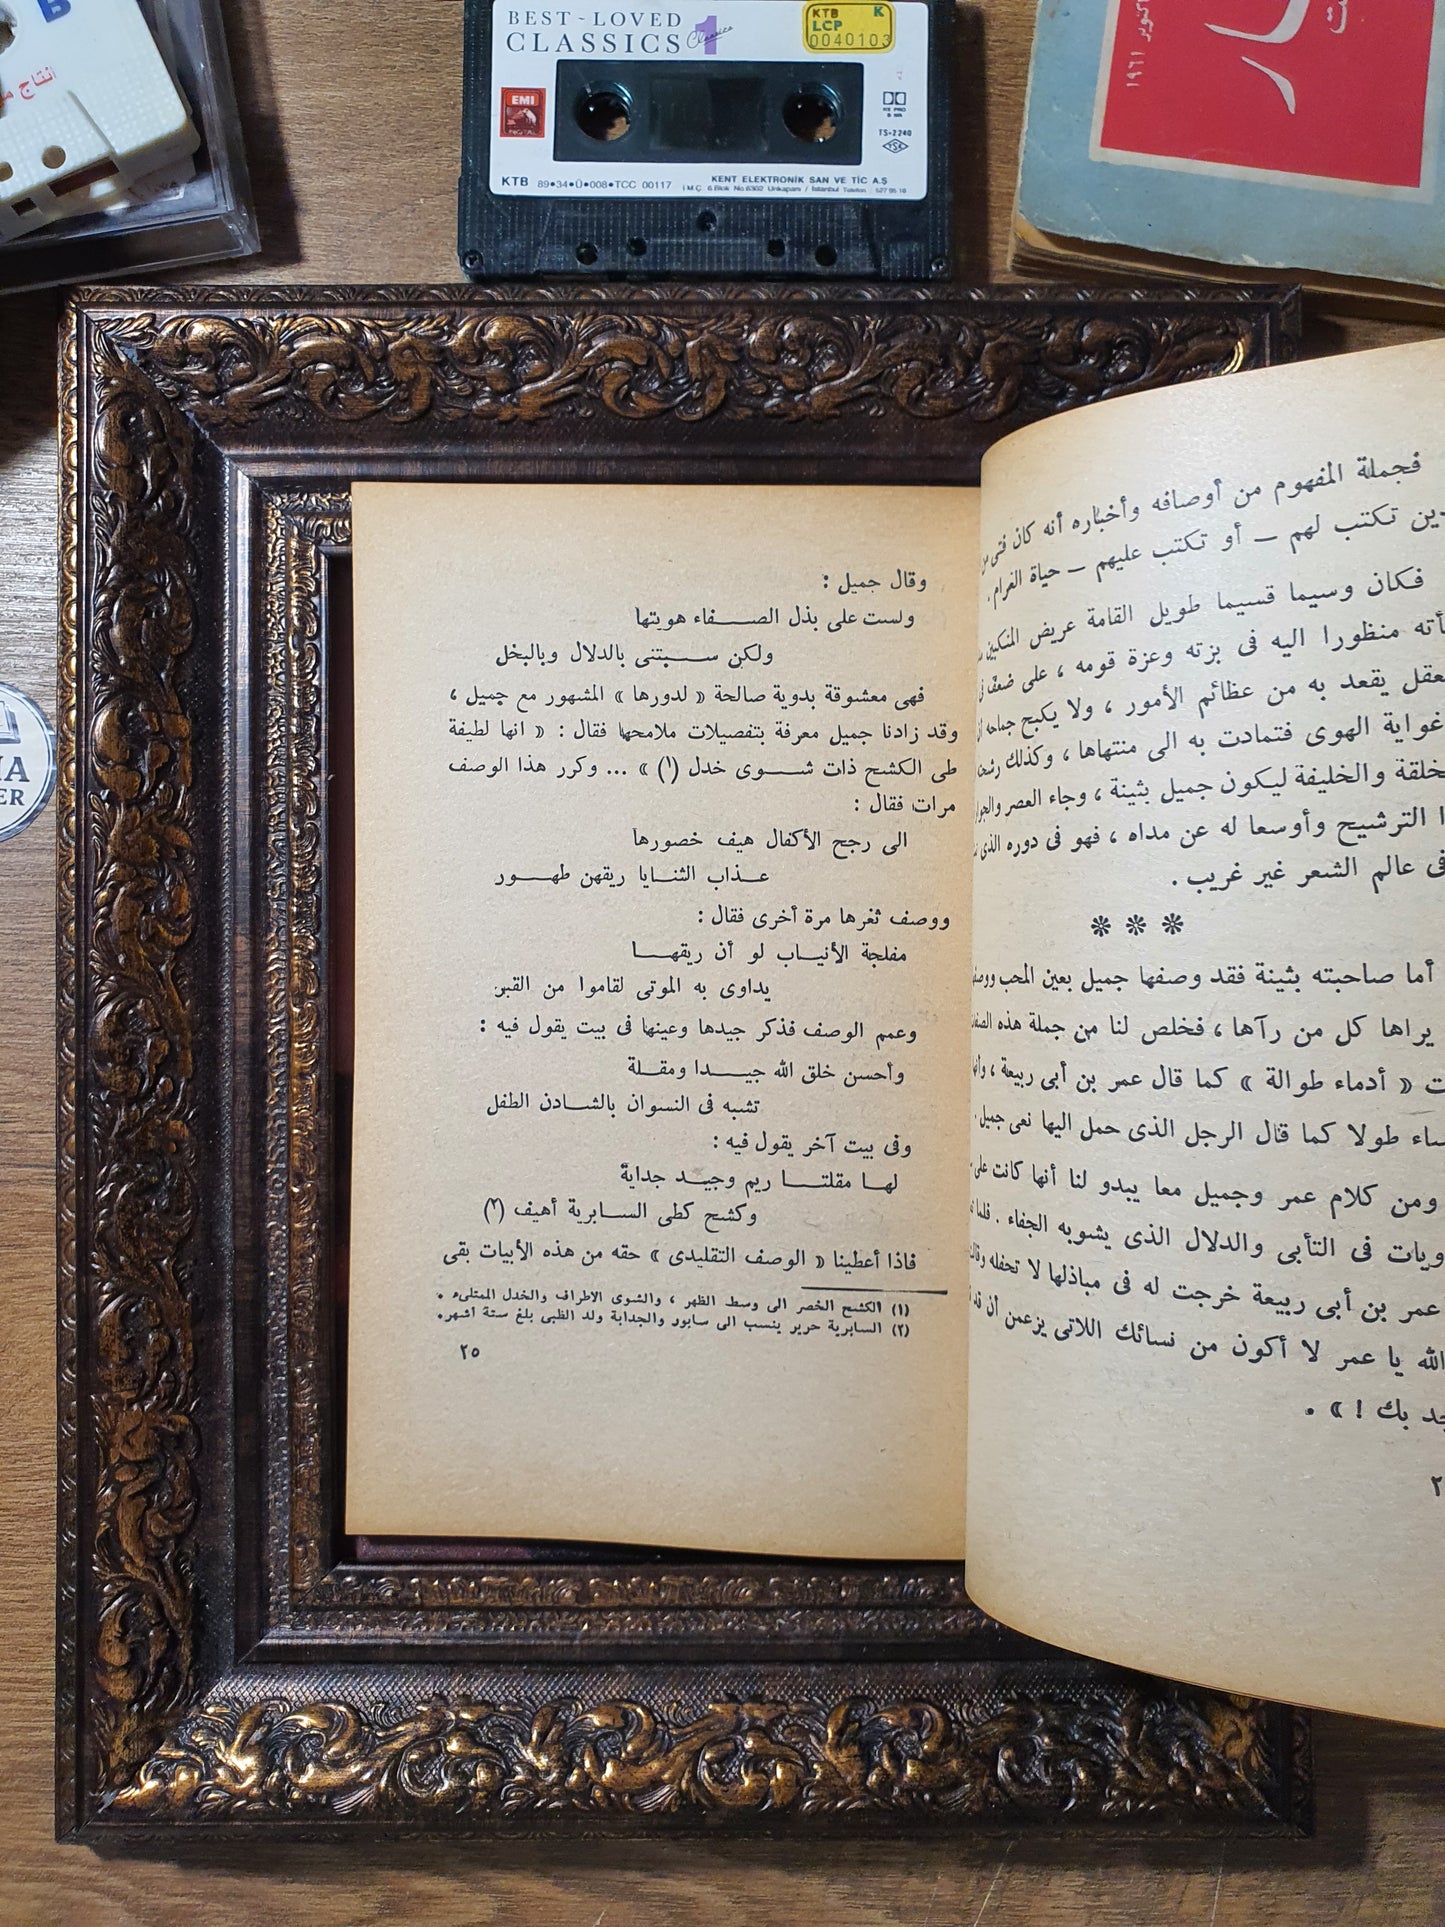 B
انتاج
BEST-LOVED
CLASSICS 1
Classics
KTB K
LCP
0040103
EMI
DOLBY HX PRO
B NR
TS-2240
TSE
KTB 89•34•Ü•008•TCC 00117
KENT ELEKTRONİK SAN VE TİC A.Ş
İ.M.Ç. 6.Blok No.6302 Unkapanı / İstanbul Telefon: 527 95 10
أكتوبر ١٩٦١
فجملة المفهوم من أوصافه وأخباره أنه كان فتى من
تكتب لهم — أو تكتب عليهم — حياة الغرام .
فكان وسيما قسيما طويل القامة عريض المنكبين
منظورا اليه فى بزته وعزة قومه ، على ضعف فى
يقعد به من عظائم الأمور ، ولا يكبح جماحه
غواية الهوى فتمادت به الى منتهاها ، وكذلك
والخليفة ليكون جميل بثينة ، وجاء العصر
الترشيح وأوسعا له عن مداه ، فهو فى دوره الذى
فى عالم الشعر غير غريب .
* * *
أما صاحبته بثينة فقد وصفها جميل بعين المحب
يراها كل من رآها ، فخلص لنا من جملة هذه
« أدماء طوالة » كما قال عمر بن أبى ربيعة ،
طولا كما قال الرجل الذى حمل اليها نعى جميل .
ومن كلام عمر وجميل معا يبدو لنا أنها كانت على
فى التأبى والدلال الذى يشوبه الجفاء .
عمر بن أبى ربيعة خرجت له فى مباذلها لا تحفله
الله يا عمر لا أكون من نسائك اللاتى يزعمن أن قد
بك ! » .
وقال جميل :
ولست على بذل الصفاء هويتها
ولكن سبتنى بالدلال وبالبخل
فهى معشوقة بدوية صالحة « لدورها » المشهور مع جميل ،
وقد زادنا جميل معرفة بتفصيلات ملامحها فقال : « انها لطيفة
طى الكشح ذات شوى خدل (١) » ... وكرر هذا الوصف
مرات فقال :
الى رجح الأكفال هيف خصورها
عذاب الثنايا ريقهن طهور
ووصف ثغرها مرة أخرى فقال :
مفلجة الأنياب لو أن ريقها
يداوى به الموتى لقاموا من القبر
وعمم الوصف فذكر جيدها وعينها فى بيت يقول فيه :
وأحسن خلق الله جيدا ومقلة
تشبه فى النسوان بالشادن الطفل
وفى بيت آخر يقول فيه :
لها مقلتا ريم وجيد جداية
وكشح كطى السابرية أهيف (٢)
فاذا أعطينا « الوصف التقليدى » حقه من هذه الأبيات بقى
(١) الكشح الخصر الى وسط الظهر ، والشوى الاطراف والخدل الممتلىء .
(٢) السابرية حرير ينسب الى سابور والجداية ولد الظبى بلغ ستة اشهر.
٢٥